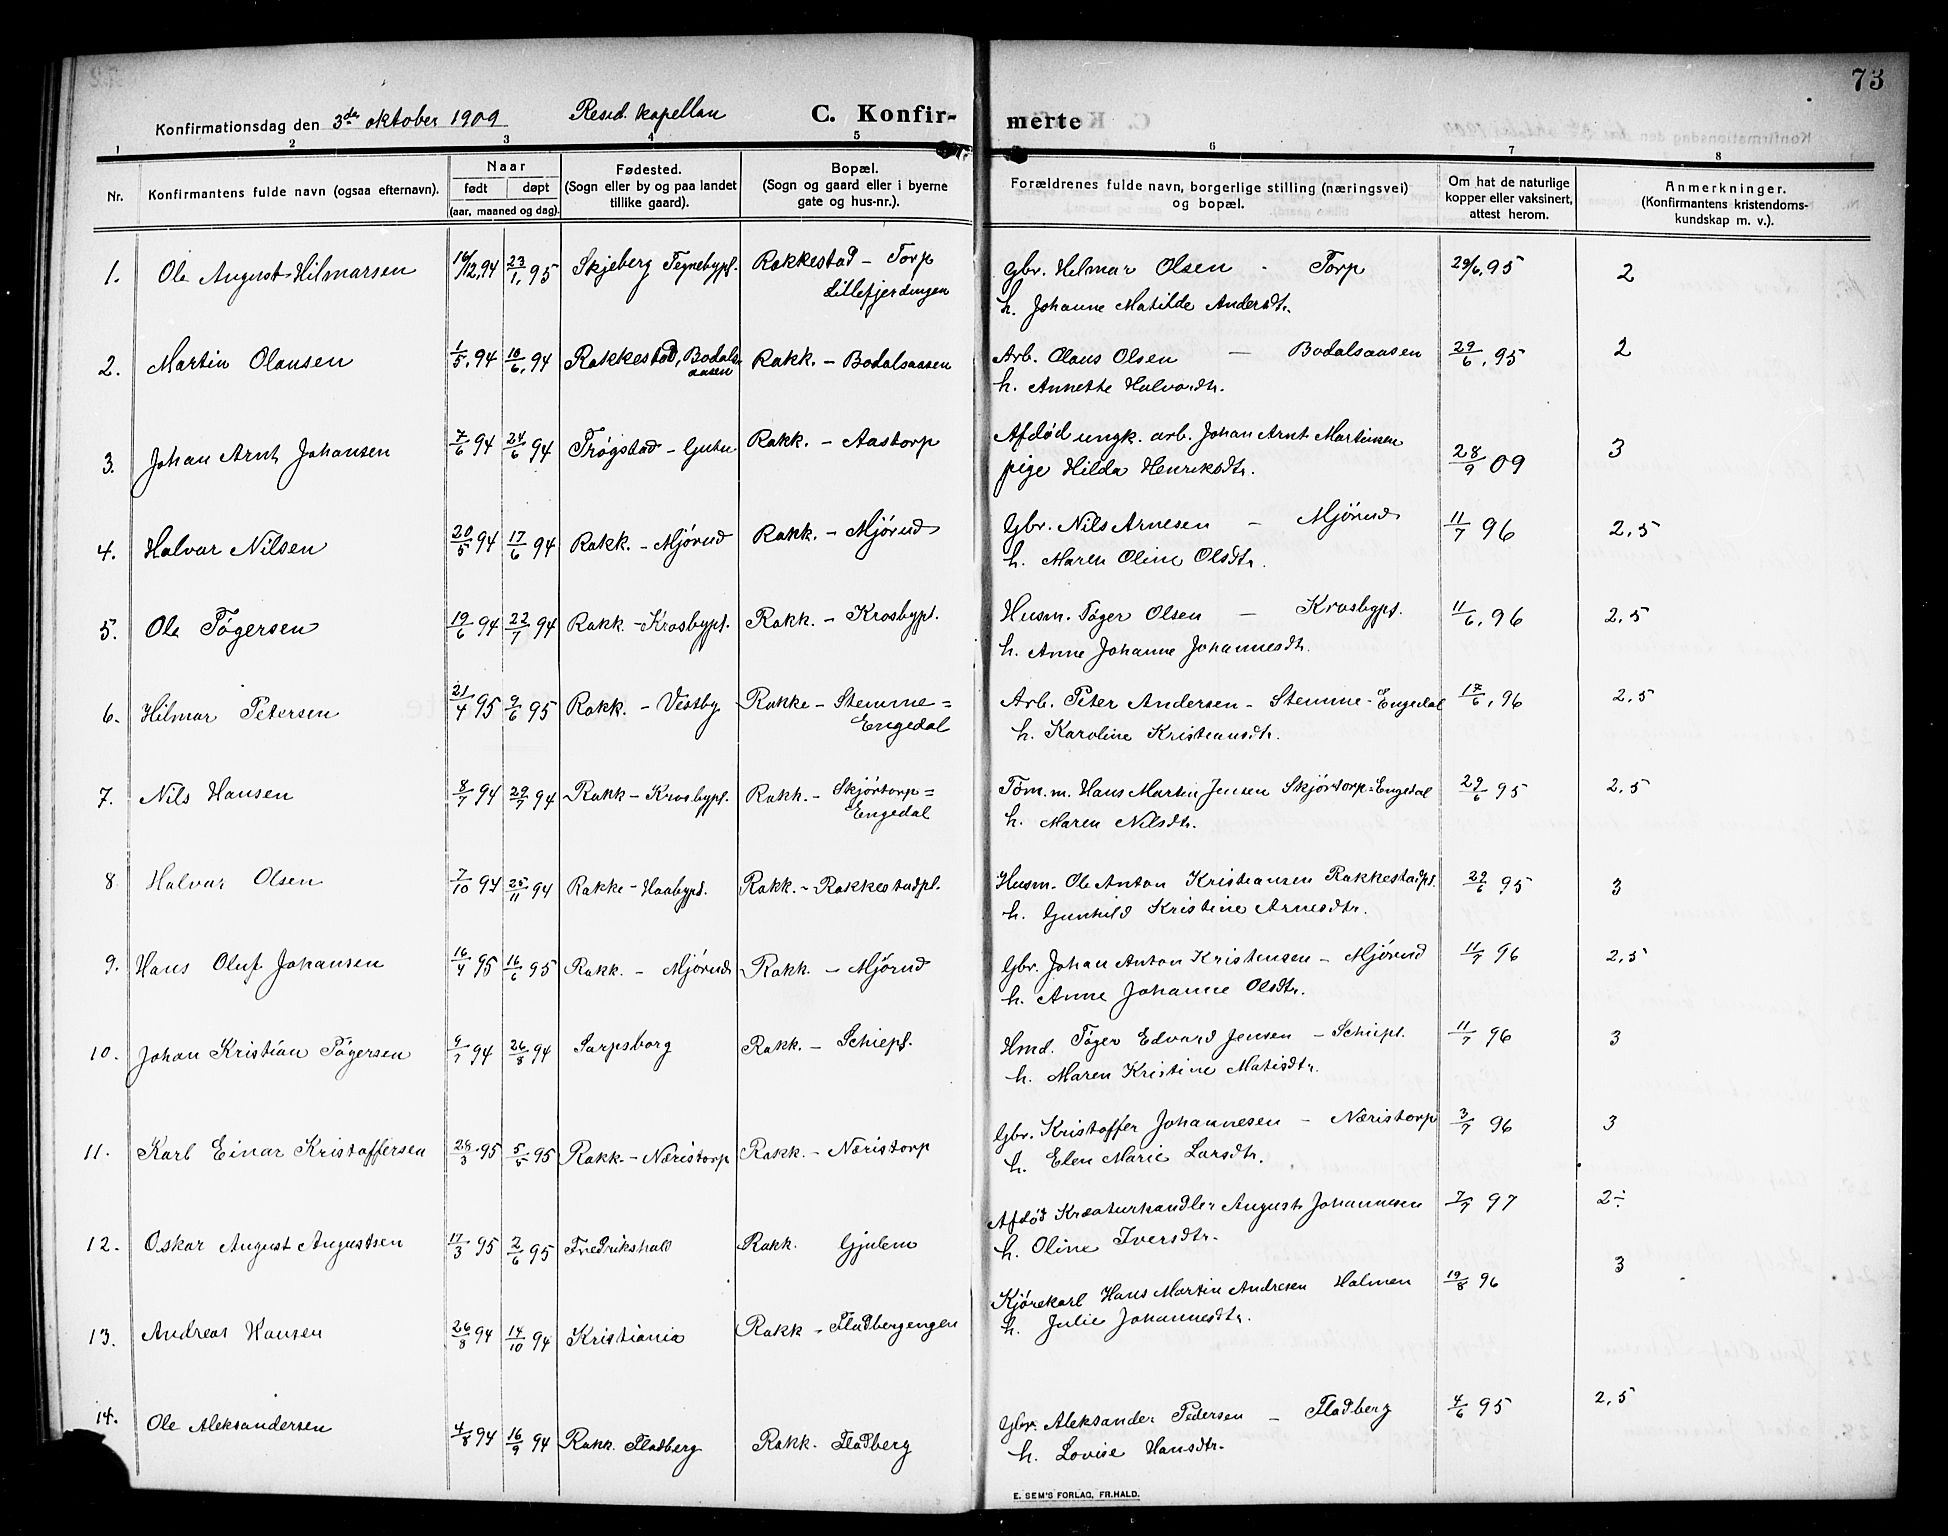 73
Konfirmationsdag den 3die oktober 1909 Resid. kapellan C. Konfirmerte
1 2 3 4 5 6 7 8
Nr. Konfirmantens fulde navn (ogsaa efternavn). Naar født døpt (aar, maaned og dag). Fødested. (Sogn eller by og paa landet tillike gaard). Bopæl. (Sogn og gaard eller i byerne gate og hus-nr.). Forældrenes fulde navn, borgerlige stilling (næringsvei) og bopæl. Om hat de naturlige kopper eller vaksinert, attest herom. Anmerkninger. (Konfirmantens kristendomskundskap m. v.).
1. Ole August Hilmarsen /12,94 23/1,95 Skjeberg Tegnebypl. Rakkestad – Torp Gbr. Hilmar Olsen - Torp 29/6,95 2
Lillefjerdingen h. Johanne Matilde Andersdtr.
2. Martin Olausen 1/5,94 10/6,94 Rakkestad, Bodalsaasen Rakk. – Bodalsaasen Arb. Olaus Olsen – Bodalsaasen 29/6,95 2
h. Annette Halvordtr.
3. Johan Arnt Johansen 7/6 94 24/6 94 Trøgstad – Gutu Rakk. – Aastorp Afdød ungk. arb. Johan Arnt Martinsen 28/9 09 3
pige Hilda Henriksdtr.
4. Halvar Nilsen 20/5 94 17/6 94 Rakk. – Mjørud Rakk. – Mjørud Gbr. Nils Arnesen – Mjørud 11/7 96 2,5
h. Maren Oline Olsdtr.
5. Ole Tøgersen 19/6 94 22/7 94 Rakk. – Krosbypl. Rakk. – Krosbypl. Husm. Tøger Olsen – Krosbypl. 11/6,96 2,5
h. Anne Johanne Johannesdtr.
6. Hilmar Petersen 21/4 95 9/6 95 Rakk. – Vestby Rakke – Stemme= Arb. Peter Andersen – Stemme-Engedal 17/6,96 2,5
Engedal h. Karoline Kristiansdtr.
7. Nils Hansen 8/7 94 29/7 94 Rakk – Krosbypl. Rakk. – Skjørtorp= Tøm.m. Hans Martin Jensen Skjørtorp=Engedal 29/6 95 2,5
Engedal h. Maren Nilsdtr.
8 Halvar Olsen 7/10 94 25/11 94 Rakke – Haabypl. Rakk. – Rakkestadpl. Husm. Ole Anton Kristiansen Rakkestadpl. 29/6 95 3
h. Gunhild Kristine Arnesdtr.
9. Hans Oluf Johansen 16/4 95 16/6 95 Rakk. – Mjørud Rakk. – Mjørud Gbr. Johan Anton Kristensen – Mjørud 11/7 96 2,5
h. Anne Johanne Olsdtr.
10. Johan Kristian Tøgersen 9/7 94 26/8 94 Sarpsborg Rakk. – Schiepl. Hmd. Tøger Edvard Jensen – Schiepl. 11/7 96 3
h. Maren Kristine Matisdtr.
11. Karl Einar Kristoffersen 28/3 95 5/5 95 Rakk. – Næristorp Rakk. – Næristorp Gbr. Kristoffer Johannesen – Næristorp 3/7 96 3
h. Elen Marie Larsdtr.
12. Oskar August Augustsen 17/3 95 2/6 95 Fredrikshald Rakk. Gjulem Afdød Kreaturhandler August Johannesen 7/7 97 2÷
h. Oline Iversdtr.
13. Andreas Hansen 26/8 94 14/10 94 Kristiania Rakk – Fladbergengen Kjørekarl Hans Martin Andresen Holmen 19/8 96 3
h. Julie Johannesdtr.
14. Ole Aleksandersen 4/8 94 16/9 94 Rakk. Fladberg Rakk. Fladberg Gbr. Aleksander Pedersen – Fladberg 4/6 95 2,5
h. Lovise Hansdtr.
E. SEM'S FORLAG, FR.HALD.